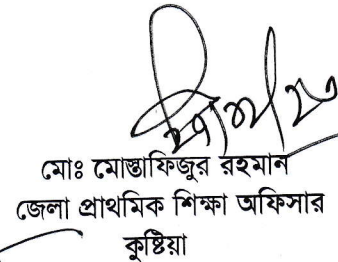 মোঃ মোস্তাফিজুর রহমান
জেলা প্রাথমিক শিক্ষা অফিসার
কুষ্টিয়া